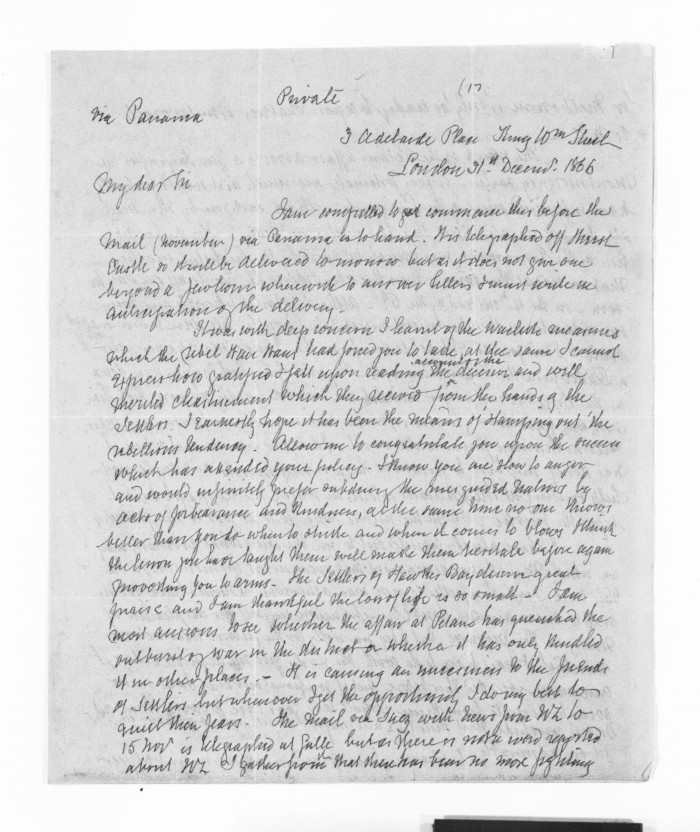 (1)
Private
via Panama
3 Adelaide Place King Wm Street
London 31st Decemr. 1866
My dear Sir
I am compelled to commence this before the
Mail (November) via Panama is to hand. It is telegraphed off Hurst
Castle so it will be delivered to morrow but as it does not give one
beyond a few hours wherewith to answer letters I must write in
anticipation of the delivery.
It was with deep concern I learnt of the Warlike measures
which the rebel Hau Haus had forced you to take, at the same I cannot
express how gratified I felt upon reading the account of the decisive and well
merited chastisement which they received from the hands of the
Settlers. I earnestly hope it has been the means of 'stamping out' the
rebellious tendency. Allow me to congratulate you upon the success
which has attended your policy. I know you are slow to anger
and would infinitely prefer subduing the misguided natives by
acts of forbearance and kindness, at the same time no one knows
better than you do when to strike and when it comes to blows I think
the lesson you have taught them will make them hesitate before again
provoking you to arms. The Settlers of Hawkes Bay deserve great
praise and I am thankful the loss of life is so small. I am
most anxious to see whether the affair at Petane has quenched the
outburst of war in the district or whether it has only kindled
it in other places. - It is causing an uneasiness to the friends
of Settlers but whenever I get the opportunity I do my best to
quiet their fears. The Mail via Suez with News from NZ to
15 Novr is telegraphed at Galle but as there is not a word reported
about NZ I gather from that there has been no more fighting